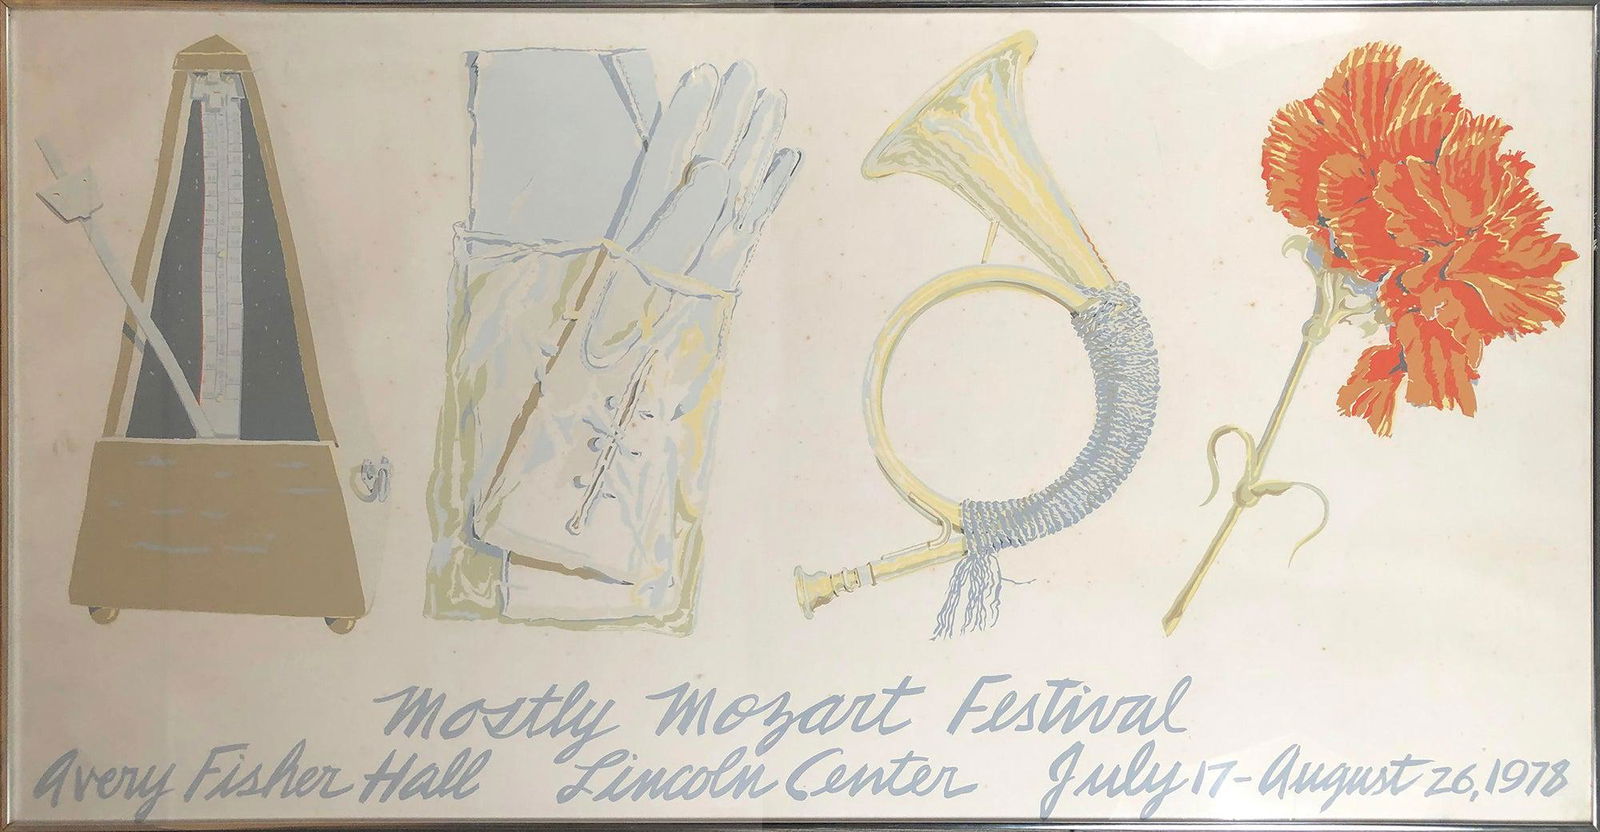 Mostly Mozart Festival
Avery Fisher Hall Lincoln Center July 17-August 26, 1978